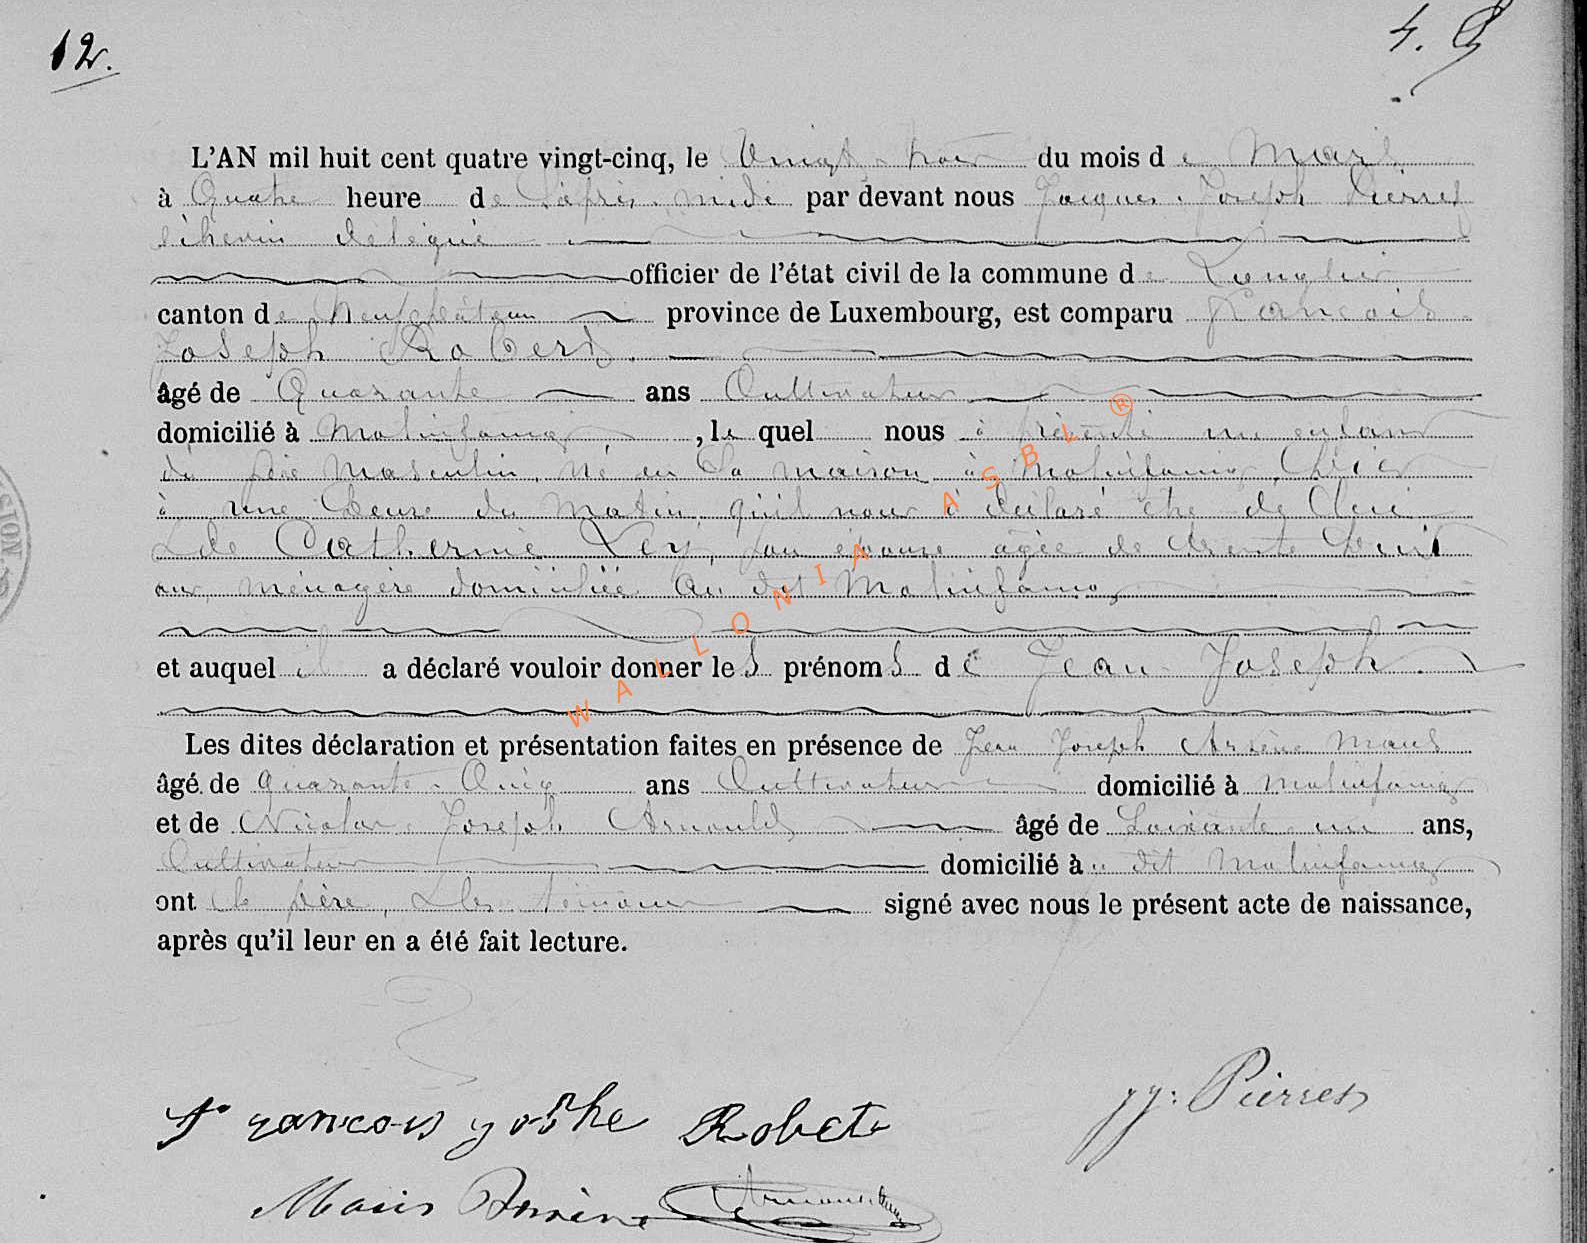 12.
L'AN mil huit cent quatre vingt-cinq, le Vingt trois du mois de Mars
à Quatre heure de l'après midi par devant nous Jacques Joseph Pierret
échevin délégué
officier de l'état civil de la commune de Longlier
canton de Neufchâteau province de Luxembourg, est comparu Francois
Joseph Robert.
âgé de Quarante ans Cultivateur
domicilié à Molinfaing, le quel nous à présenté un enfant
du sexe masculin, né en sa maison à Molinfaing, hier
à une heure du matin, qu'il nous à déclaré être de lui
& de Catherine Ley, son épouse agée de trente huit
ans, ménagère domiciliée au dit Molinfaing
et auquel il a déclaré vouloir donner les prénoms de Jean Joseph.
Les dites déclaration et présentation faites en présence de Jean Joseph Arsène Maus
âgé de quarante Cinq ans Cultivateur domicilié à Molinfaing
et de Nicolas Joseph Arnould âgé de Soixante un ans,
Cultivateur domicilié à u dit Molinfaing
ont le père, & les témoins signé avec nous le présent acte de naissance,
après qu'il leur en a été fait lecture.
SION
WALLONIA ASBL ®
JJ: Pierret
Robet